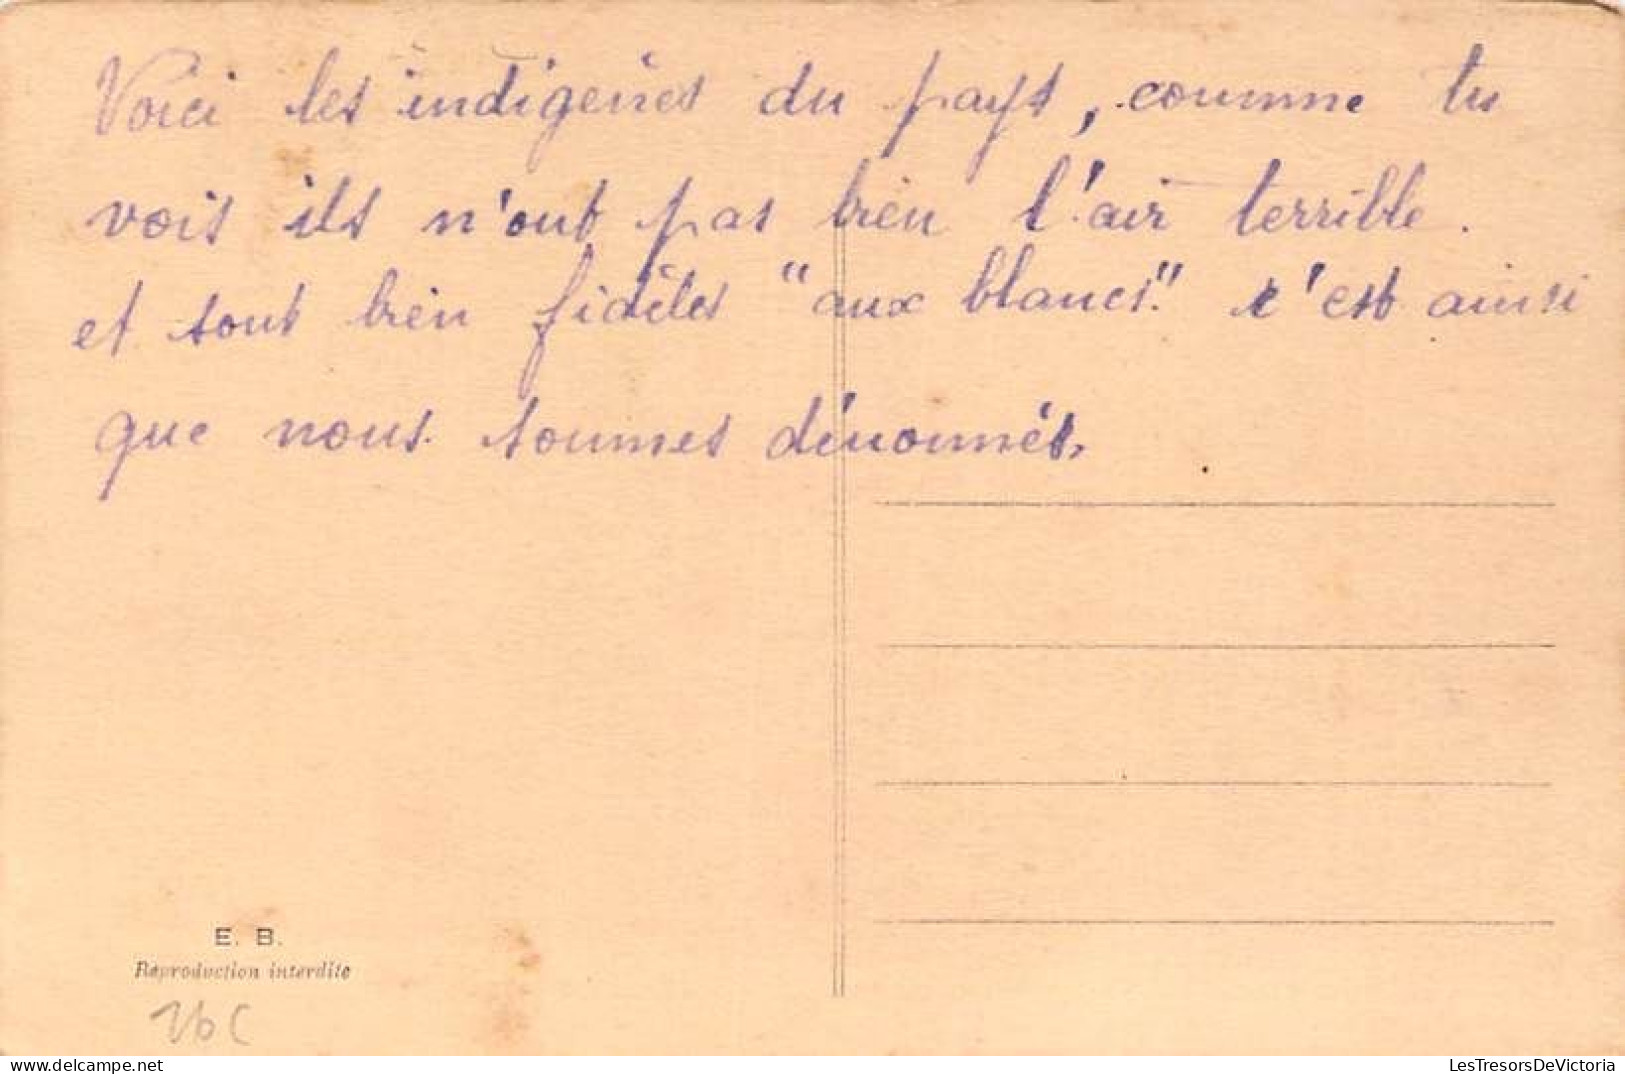 Voici les indigènes du pays, comme tu
vois ils n'ont pas bien l'air terrible.
et sont bien fidèles "aux blancs". c'est ainsi
que nous sommes dénommés.
E. B.
Reproduction interdite
delcampe.net
LesTresorsDeVictoria